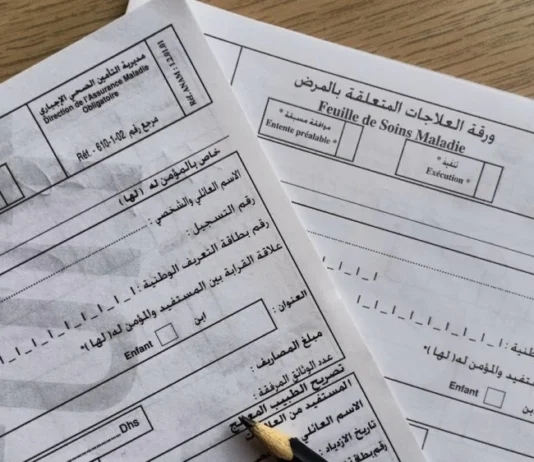 مديرية التأمين الصحي الإجباري
Direction de l'Assurance Maladie
Obligatoire
مرجع رقم Réf. - 610-1-02
Réf. ANAM : 12.01.01
خاص بالمؤمن له (لها)
الاسم العائلي والشخصي :
رقم التسجيل :
رقم بطاقة التعريف الوطنية :
علاقة القرابة بين المستفيد والمؤمن له( لها )*
ابن Enfant
العنوان :
مبلغ المصاريف :
Dhs
عدد الوثائق المرفقة :
تصريح الطبيب المعالج
المستفيد من
الاسم العائلي
تاريخ الازدياد :
ورقة العلاجات المتعلقة بالمرض
Feuille de Soins Maladie
موافقة مسبقة *
Entente préalable *
تنفيذ *
Exécution *
له( لها )*
ابن Enfant